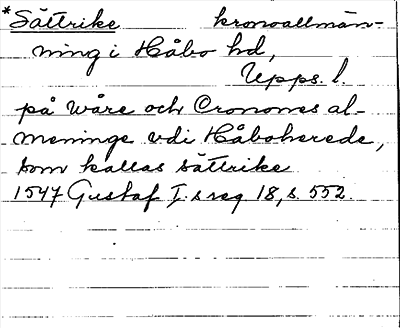 *Sättrike kronoallmän-
ning i Håbo hd,
Upps. l.
på wåre och Cronones al-
meninge vdi Håboherede,
som kallas sättrike
1547 Gustaf I:s reg 18, s. 552.